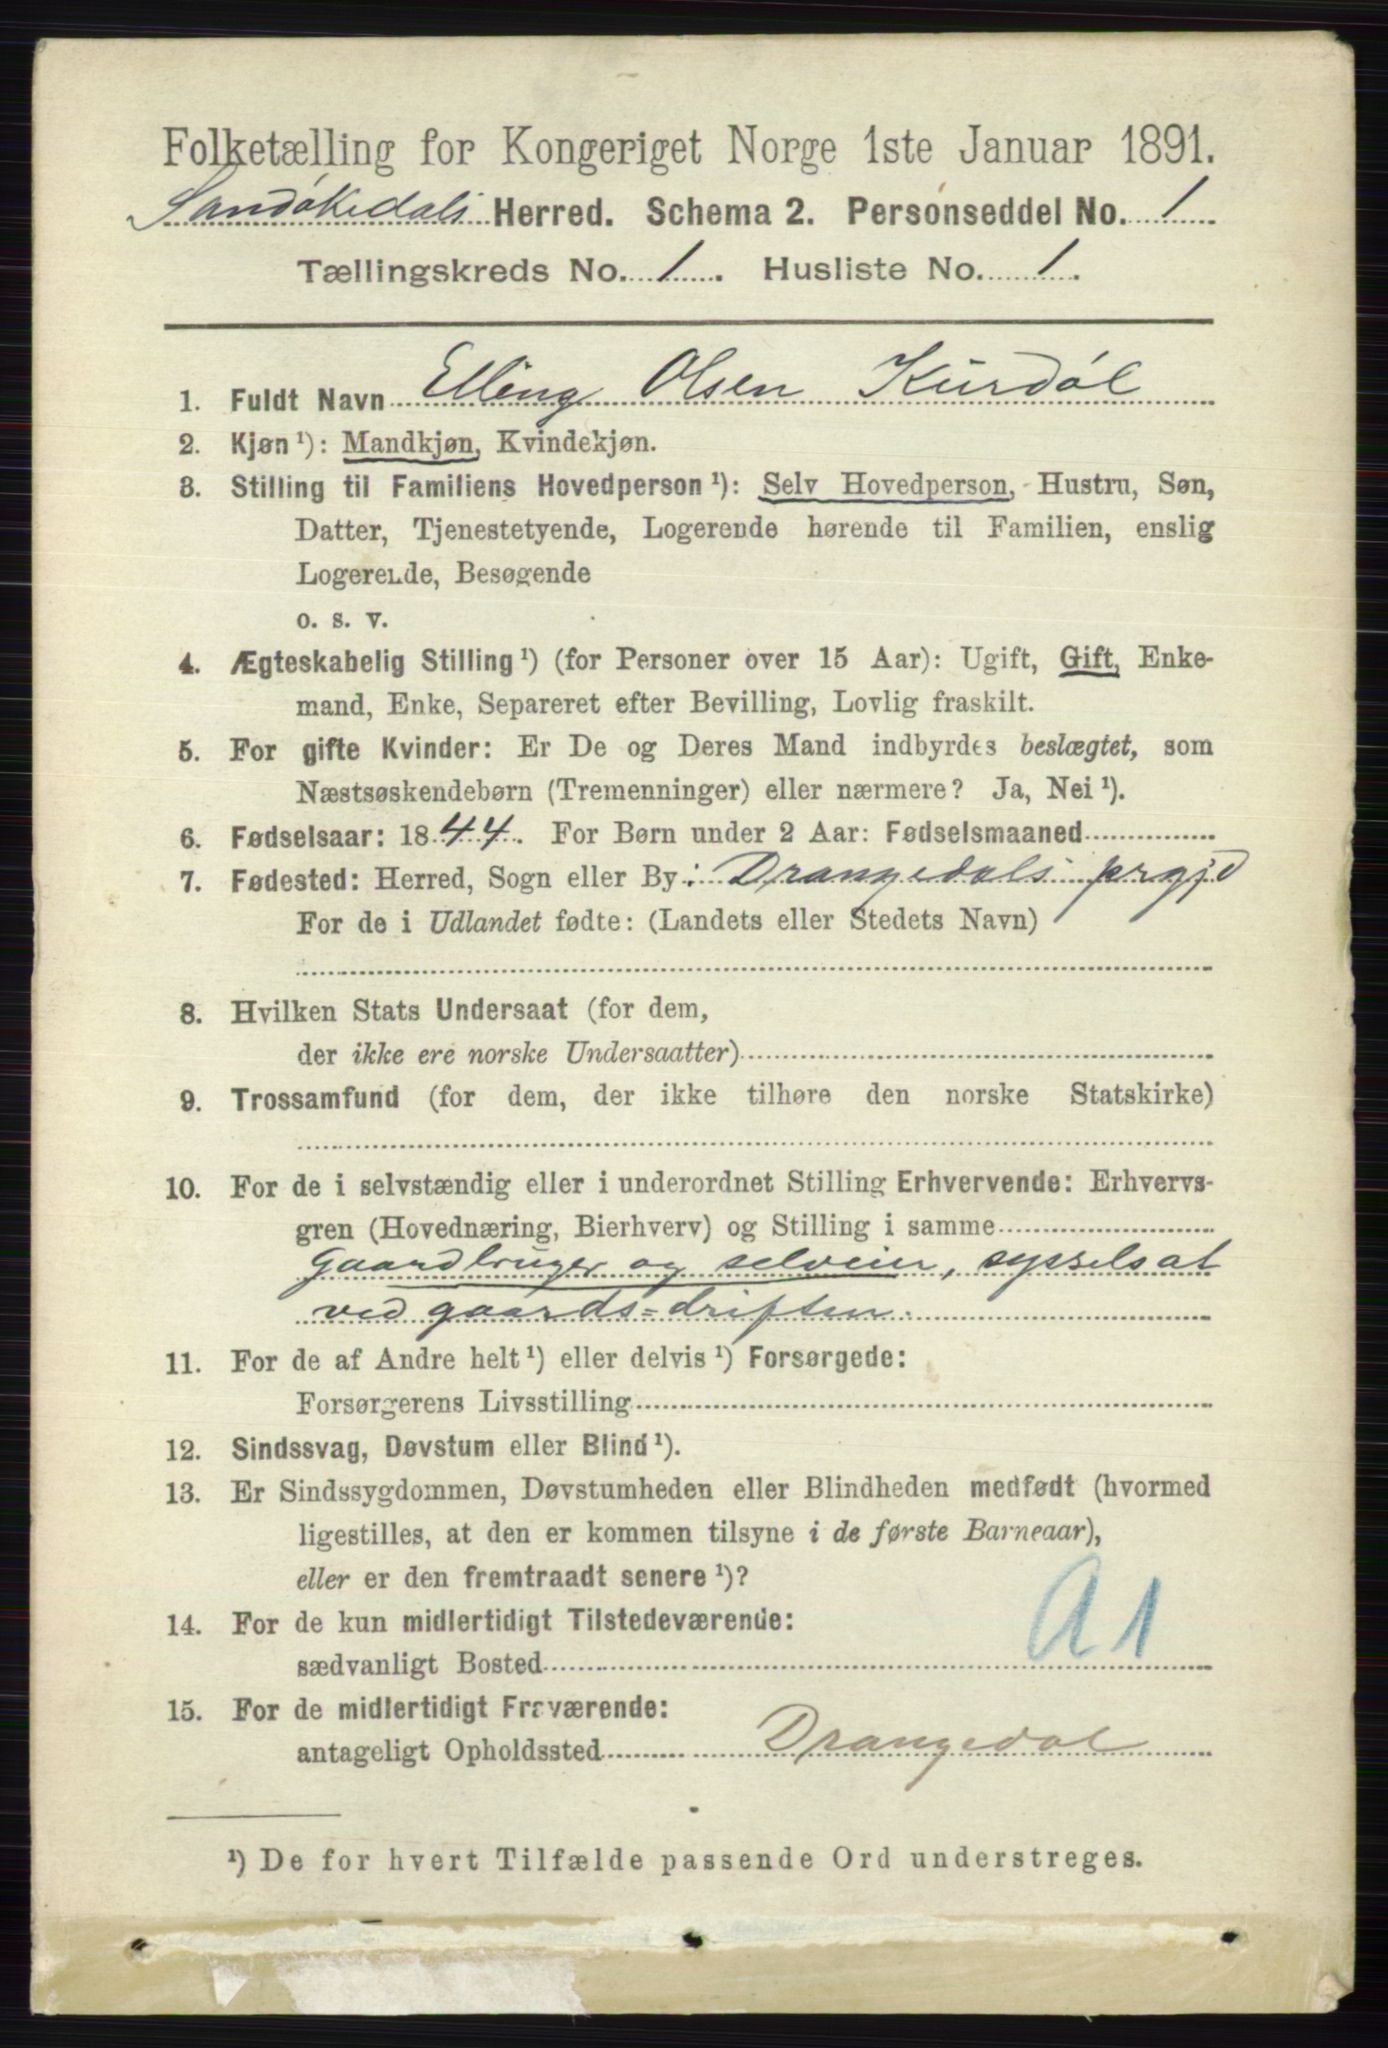 Folketælling for Kongeriget Norge 1ste Januar 1891.
Sandøkedals Herred. Schema 2. Personseddel No. 1
Tællingskreds No. 1. Husliste No. 1.
1. Fuldt Navn Elling Olsen Kurdøl
2. Kjøn ¹): Mandkjøn, Kvindekjøn.
3. Stilling til Familiens Hovedperson ¹): Selv Hovedperson, Hustru, Søn,
Datter, Tjenestetyende, Logerende hørende til Familien, enslig
Logerende, Besøgende
o. s. v.
4. Ægteskabelig Stilling ¹) (for Personer over 15 Aar): Ugift, Gift, Enke-
mand, Enke, Separeret efter Bevilling, Lovlig fraskilt.
5. For gifte Kvinder: Er De og Deres Mand indbyrdes beslægtet, som
Næstsøskendebørn (Tremenninger) eller nærmere? Ja, Nei ¹).
6. Fødselsaar: 1844. For Børn under 2 Aar: Fødselsmaaned
7. Fødested: Herred, Sogn eller By: Drangedals prgjd
For de i Udlandet fødte: (Landets eller Stedets Navn)
8. Hvilken Stats Undersaat (for dem,
der ikke ere norske Undersaatter)
9. Trossamfund (for dem, der ikke tilhøre den norske Statskirke)
10. For de i selvstændig eller i underordnet Stilling Erhvervende: Erhvervs-
gren (Hovednæring, Bierhverv) og Stilling i samme
gaardbruger og selveier, sysselsat
ved gaards=driften.
11. For de af Andre helt ¹) eller delvis ¹) Forsørgede:
Forsørgerens Livsstilling
12. Sindssvag, Døvstum eller Blind ¹).
13. Er Sindssygdommen, Døvstumheden eller Blindheden medfødt (hvormed
ligestilles, at den er kommen tilsyne i de første Barneaar),
eller er den fremtraadt senere ¹)?
A1
14. For de kun midlertidigt Tilstedeværende:
sædvanligt Bosted
15. For de midlertidigt Fraværende:
antageligt Opholdssted Drangedal
¹) De for hvert Tilfælde passende Ord understreges.